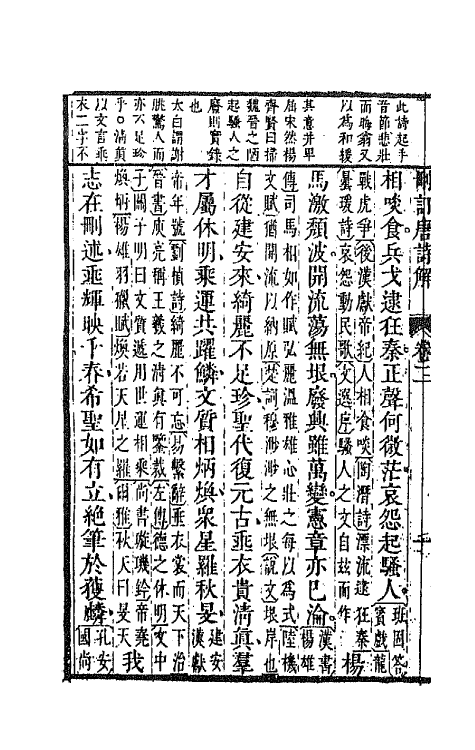 此詩起手
音節悲壯
而晦翁又
以為和緩
其意并卑
屈宋然楊
齊賢曰掃
魏晉之陋
起騷人之
廢則實錄
也
太白謂謝
朓驚人而
亦不足珍
乎○清真
以文言垂
衣二字不
刪訂唐詩解 卷二
相啖食兵戈逮狂秦正聲何微茫哀怨起騷人班固答賓戲龍
戰虎爭後漢獻帝紀人相食啖陶潛詩漂流逮狂秦
曇瑗詩哀怨動民歌文選序騷人之文自玆而作楊
馬激頹波開流蕩無垠廢興雖萬變憲章亦已淪漢書楊雄
傳司馬相如作賦弘麗溫雅雄心壯之每以爲式陸機
文賦猶開流以納原楚詞穆渺渺之無垠說文垠岸也
自從建安來綺麗不足珍聖代復元古垂衣貴清真羣
才屬休明乘運共躍鱗文質相炳煥衆星羅秋旻建安漢獻
帝年號劉楨詩綺麗不可忘易繫辭垂衣裳而天下治
晉書庾亮稱王羲之清貞有鑒裁左傳德之休明文中
子關子明曰文質遞用世運相乘尚書璇璣鈐帝堯
煥炳楊雄羽獵賦煥若天星之羅爾雅秋天曰旻天我
志在刪述垂輝映千春希聖如有立絕筆於獲麟孔安國尚